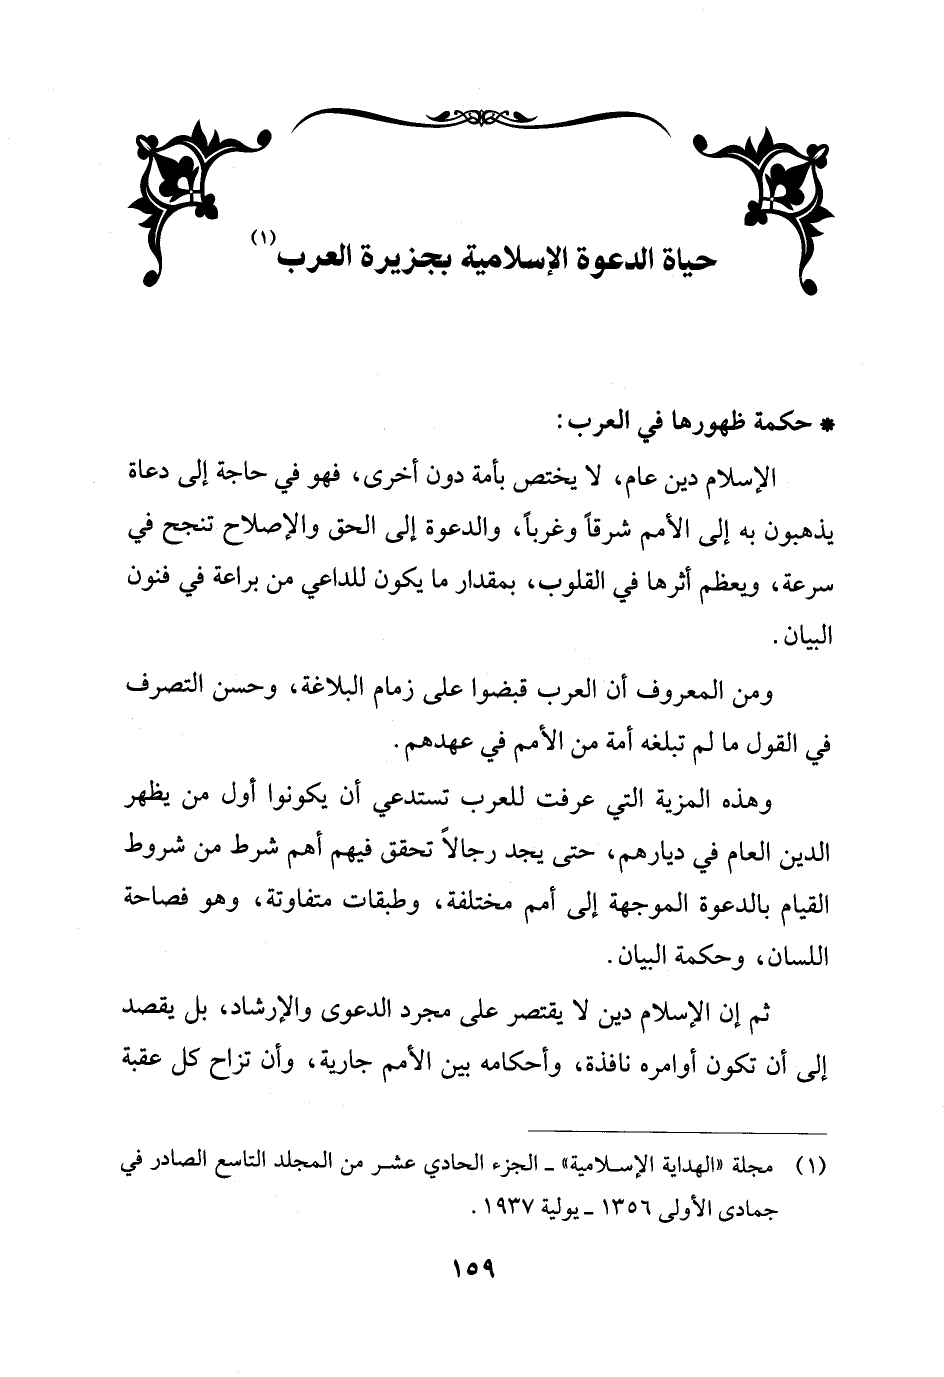 حياة الدعوة الإسلامية بجزيرة العرب(١)
* حكمة ظهورها في العرب:
الإسلام دين عام، لا يختص بأمة دون أخرى، فهو في حاجة إلى دعاة
يذهبون به إلى الأمم شرقاً وغرباً، والدعوة إلى الحق والإصلاح تنجح في
سرعة، ويعظم أثرها في القلوب، بمقدار ما يكون للداعي من براعة في فنون
البيان.
ومن المعروف أن العرب قبضوا على زمام البلاغة، وحسن التصرف
في القول ما لم تبلغه أمة من الأمم في عهدهم.
وهذه المزية التي عرفت للعرب تستدعي أن يكونوا أول من يظهر
الدين العام في ديارهم، حتى يجد رجالاً تحقق فيهم أهم شرط من شروط
القيام بالدعوة الموجهة إلى أمم مختلفة، وطبقات متفاوتة، وهو فصاحة
اللسان، وحكمة البيان.
ثم إن الإسلام دين لا يقتصر على مجرد الدعوى والإرشاد، بل يقصد
إلى أن تكون أوامره نافذة، وأحكامه بين الأمم جارية، وأن تزاح كل عقبة
(١) مجلة «الهداية الإسلامية» ـ الجزء الحادي عشر من المجلد التاسع الصادر في
جمادى الأولى ١٣٥٦ ـ يولية ١٩٣٧.
١٥٩